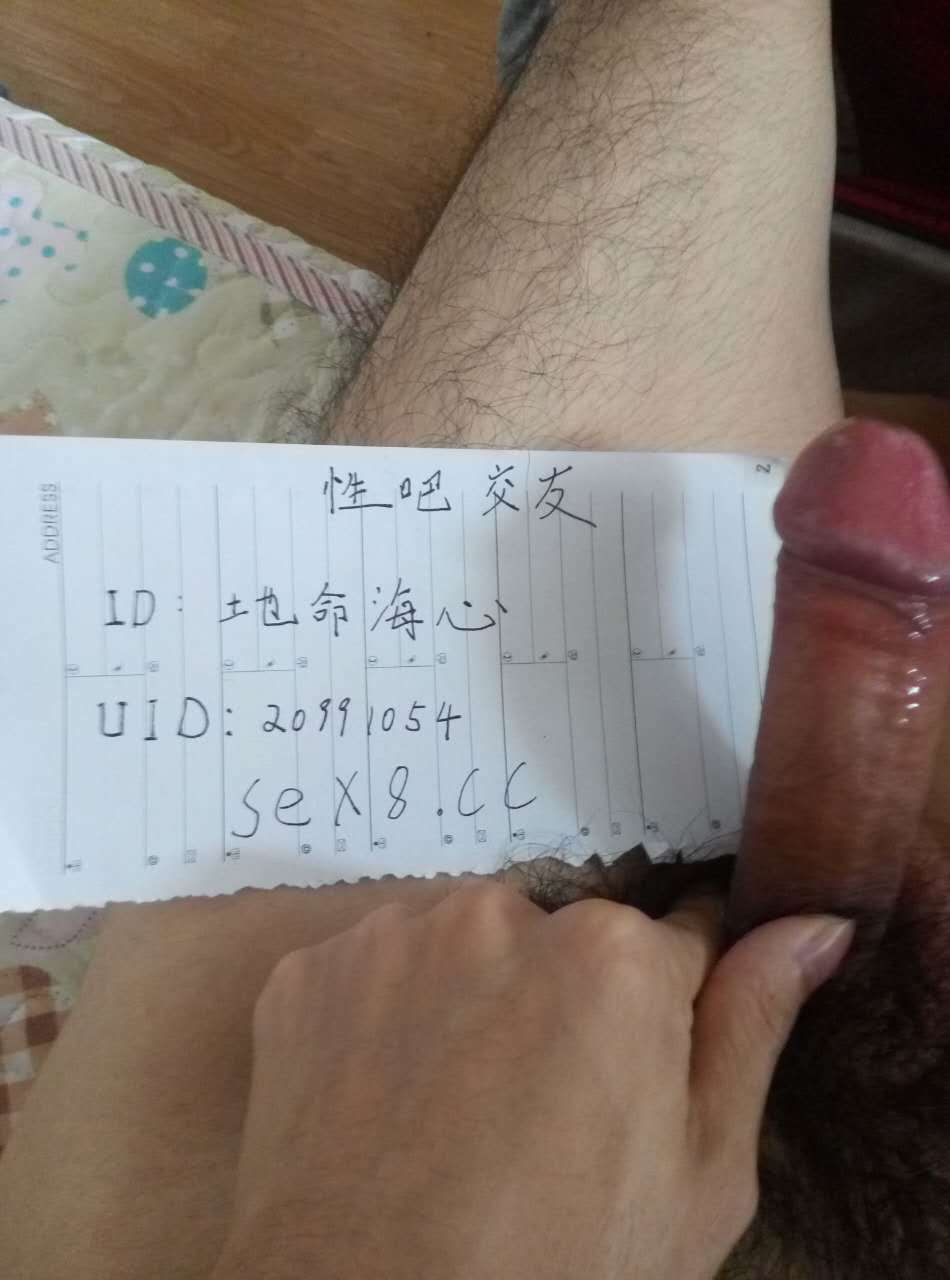 性吧交友
ID: 地命海心
UID: 20991054
SeX8.CC
ADDRESS
2